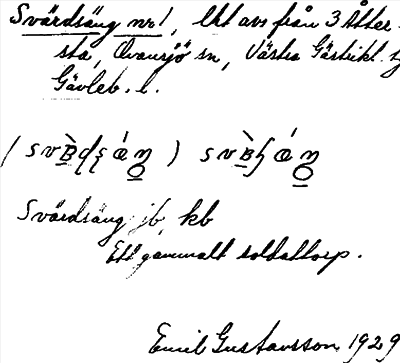 Svärdsäng nr 1, lht avs från 3 Åtter-
sta, Ovansjö sn, Västra Gästrikl. 
Gävleb. l.
Svärdsäng jb, kb
Ett gammalt soldattorp.
Emil Gustavsson 1929